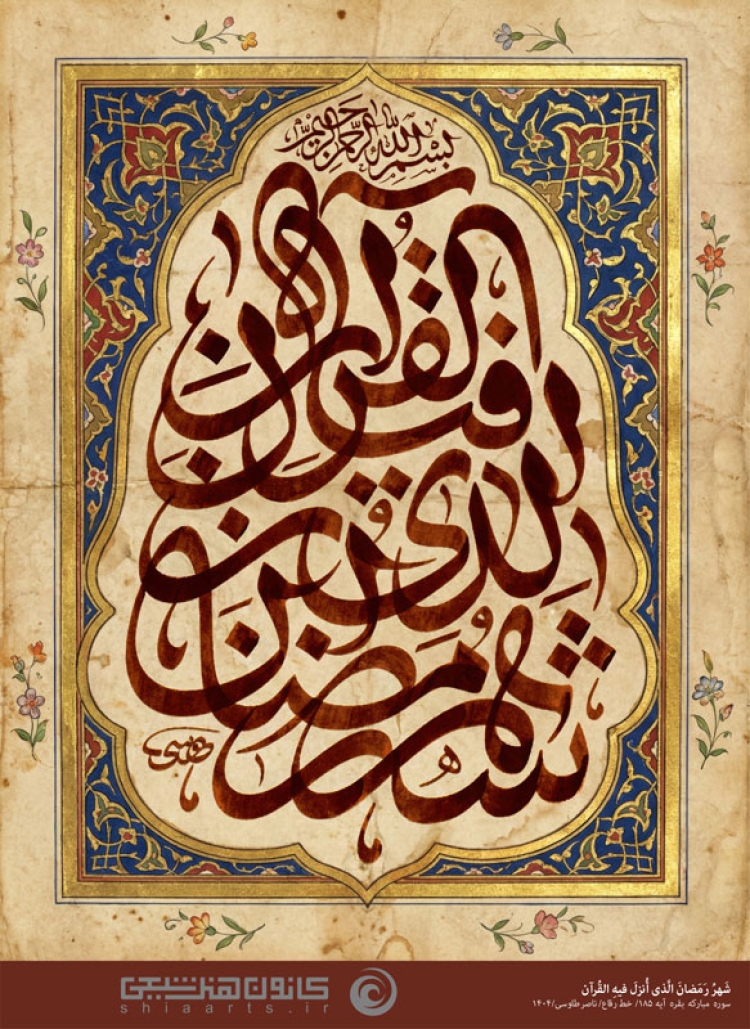 بسم الله الرحمن الرحیم
شهر رمضان الذی انزل فیه القرآن
شَهرُ رَمَضانَ الَّذی أُنزِلَ فیهِ القُرآن
سوره مبارکه بقره آیه ۱۸۵/ خط رقاع/ ناصر طاوسی/ ۱۴۰۴
کانون هنر شیعی
shiaarts.ir